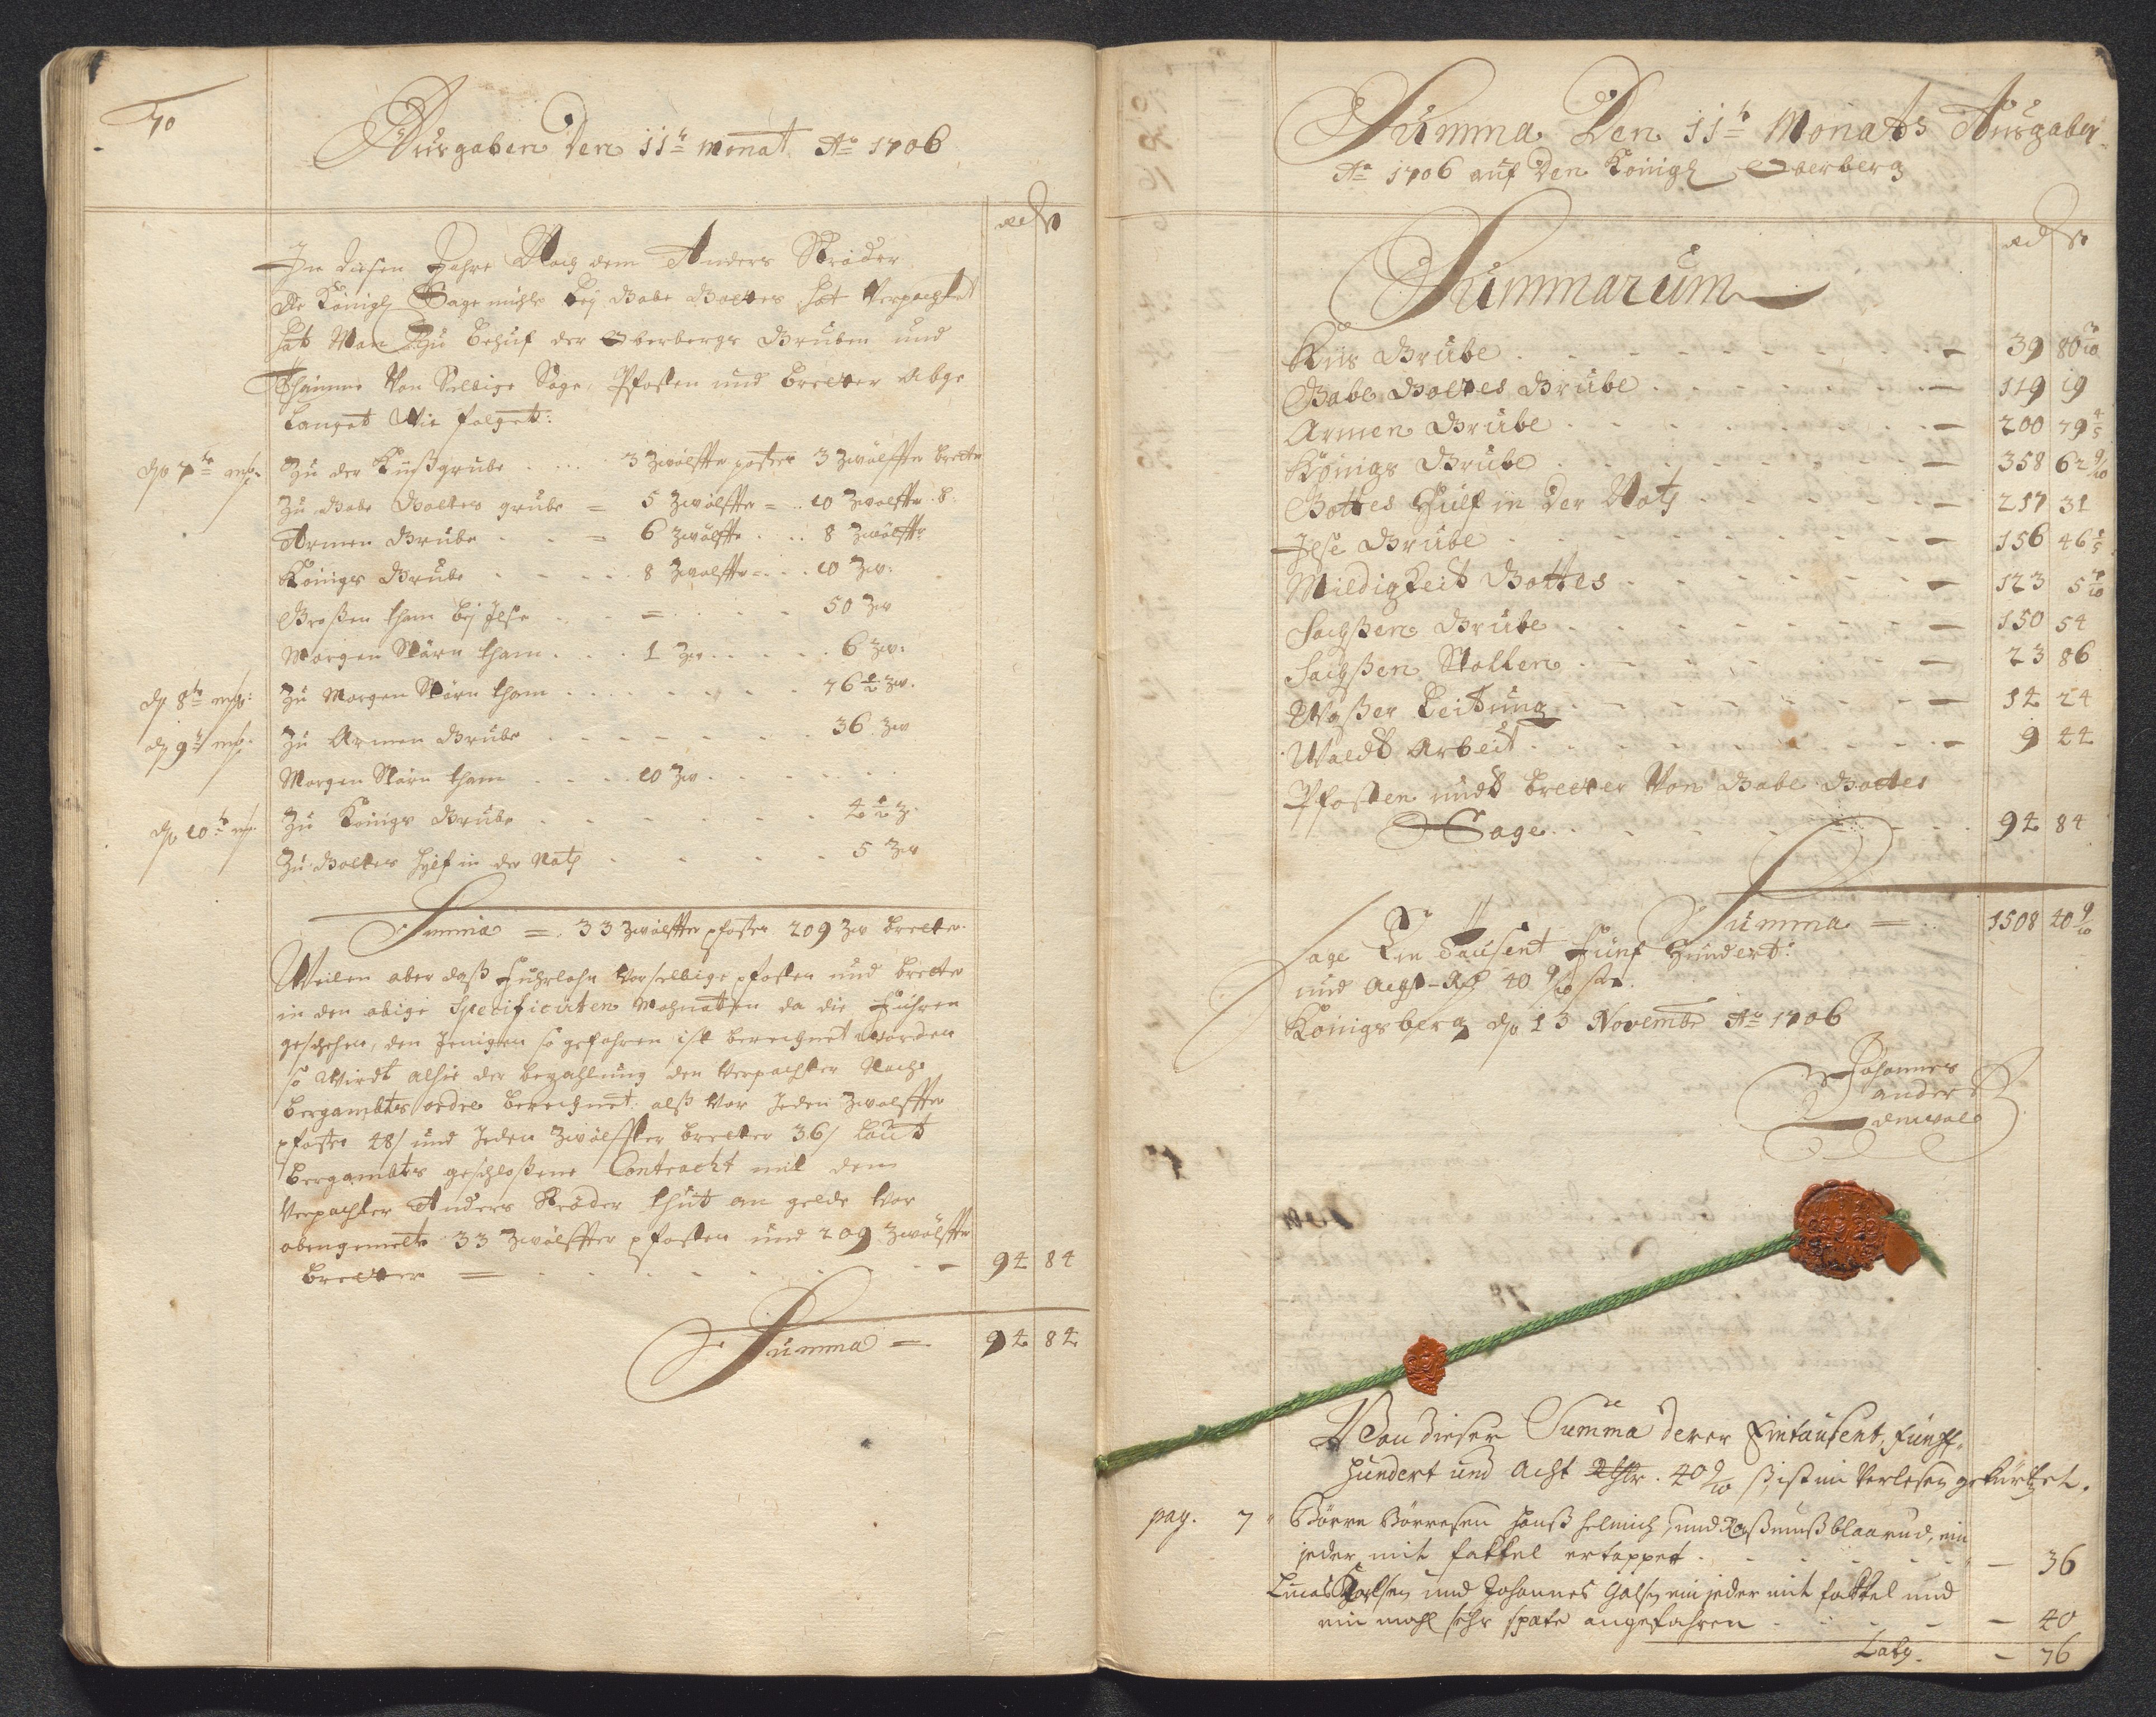 70
Ausgaben Den 11t monat Ao 1706
Rd ß
In diesen Jahre Nach dem Anders Ströder
De Königl Sage mühle bey Gabe Gottes hat Verpachtet
hat Man Zu behuf der Oberbergs Gruben und
Thämme Von Selbige Sage, Pfosten und bretter Abge
langet Wie folget:
dp 7te
Zu der Küßgrube .... 3 Zwölffte posten 3 Zwölffter brette
Zu Gabe Gottes grube = 5 Zwölffte = .. 10 Zwölffte . b.
Armen Grube . . = 6 Zwölffte . .. 8 Zwölffte
Königs Grube . . . . 8 Zwölffte = . . 10 Zw:
Großen tham bey Ilse . . = . . . 50 Zw
Morgen Stärn tham . . . 1 Zw . . . . . 6 Zw:
dp 8te
Zu Morgen Stärn tham . . . . . . . 76 1/2 Zw.
dp 9te
Zu Armen Grube . . . . . . . 36 Zw
Morgen Stärn tham . . . . 10 Zw . . . . .
dp 10te
Zu Königs Grube . . . . . . . 4 1/2 Z.
Zu Gottes hylf in der Noth . . . . . 5 Zw
Summa = . 33 Zwölffter pfosten 209 Zw bretter.
Weilen aber daß Fuhrlohn Vor selbige pfosten und bretter
in den obige Specificirten Mohnaten da die Fuhren
geschehen, den Jenigen so gefahren ist berechnet worden
so Wirdt alhie der bezahlung den Verpachter Nach
bergambts ordre berechnet: alß Vor Jeden Zwölffter
pfosten 48/ und Jeden Zwölffter bretter 36/ laut
bergambts geschloßene Contracht mit dem
Verpachter Anders Ströder thut an gelde Vor
obengemelte 33 Zwölffter pfosten und 209 Zwölffte
bretter = . . . . . . . – 94 84
Summa = 94 84
Summa Den 11t Monats Ausgaben
Ao 1706 auf Den Königl Oberberg
Rd ß
Summarum
Kiis Grube . . . . . . . . – 39 80 7/10
Gabe Gottes Grube . . . . . . – 119 19
Armen Grube . . . . . . . – 200 79 4/5
Königs Grube . . . . . . . – 358 62 9/10
Gottes Hülf in Der Noth . . . . . – 217 31
Ilse Grube . . . . . . . – 156 46 1/5
Mildigkeit Gottes . . . . . . – 123 5 7/10
Sachßen Grube . . . . . . . – 150 54
Sachßen Stollen . . . . . . – 23 86
Waßer Leitung . . . . . . – 14 24
Waldt Arbeit . . . . . . . – 9 44
Pfosten undt bretter Von Gabe Gottes
Sage . . . . . . . 94 84
Summa = .. 1508 40 9/10
Sage Ein Tausent Fünf Hundert
und Acht Rd 40 9/10 ß.
Königsberg dp 13 Novembr Ao 1706
Johannes
ander
Von dieser Summa derer Eintausent, fünff-
hundert und Acht Rthlr. 40 9/10 ß, ist im Verlesen gekürtzet.
pag. 7 Börre Börresen Hanß Helmich, und Raßmuß blaarud, ein
jeder mit fakkel ertappet . . . . . – 36
Lucas und Johannes ein jeder mit fakkel und
ein mahl sehr späte angefahren . . . – 40
Laty. – 76